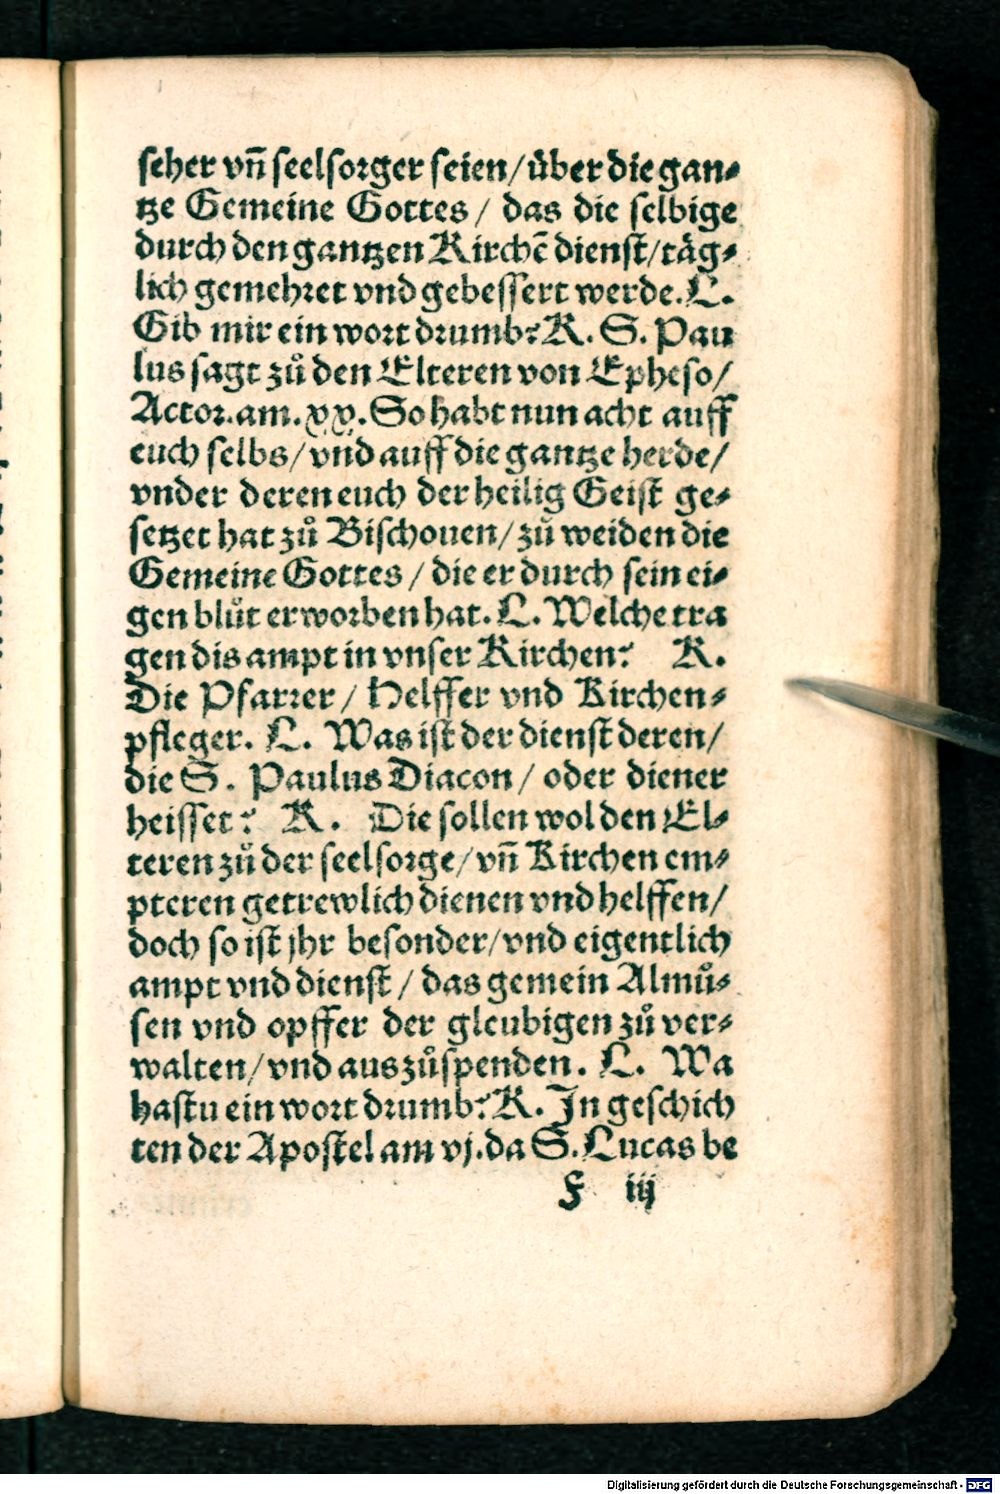 seher vñ seelsorger seien/über die gan⸗
tze Gemeine Gottes / das die selbige
durch den gantzen Kirchẽ dienst/täg⸗
lich gemehret vnd gebessert werde. L.
Gib mir ein wort drumb? K. S. Pau
lus sagt zů den Elteren von Epheso/
Actor. am. xx. So habt nun acht auff
euch selbs/vnd auff die gantze herde/
vnder deren euch der heilig Geist ge⸗
setzet hat zů Bischouen/zů weiden die
Gemeine Gottes / die er durch sein ei⸗
gen blůt erworben hat. L. Welche tra
gen dis ampt in vnser Kirchen? K.
Die Pfarrer / Helffer vnd Kirchen⸗
pfleger. L. Was ist der dienst deren/
die S. Paulus Diacon / oder diener
heisset? K. Die sollen wol den El⸗
teren zů der seelsorge/vñ Kirchen em⸗
pteren getrewlich dienen vnd helffen/
doch so ist jhr besonder/vnd eigentlich
ampt vnd dienst / das gemein Almů⸗
sen vnd opffer der gleubigen zů ver⸗
walten/vnd auszůspenden. L. Wa
hastu ein wort drumb? K. In geschich
ten der Apostel am vj. da S. Lucas be
F iij
Digitalisierung gefördert durch die Deutsche Forschungsgemeinschaft - DFG